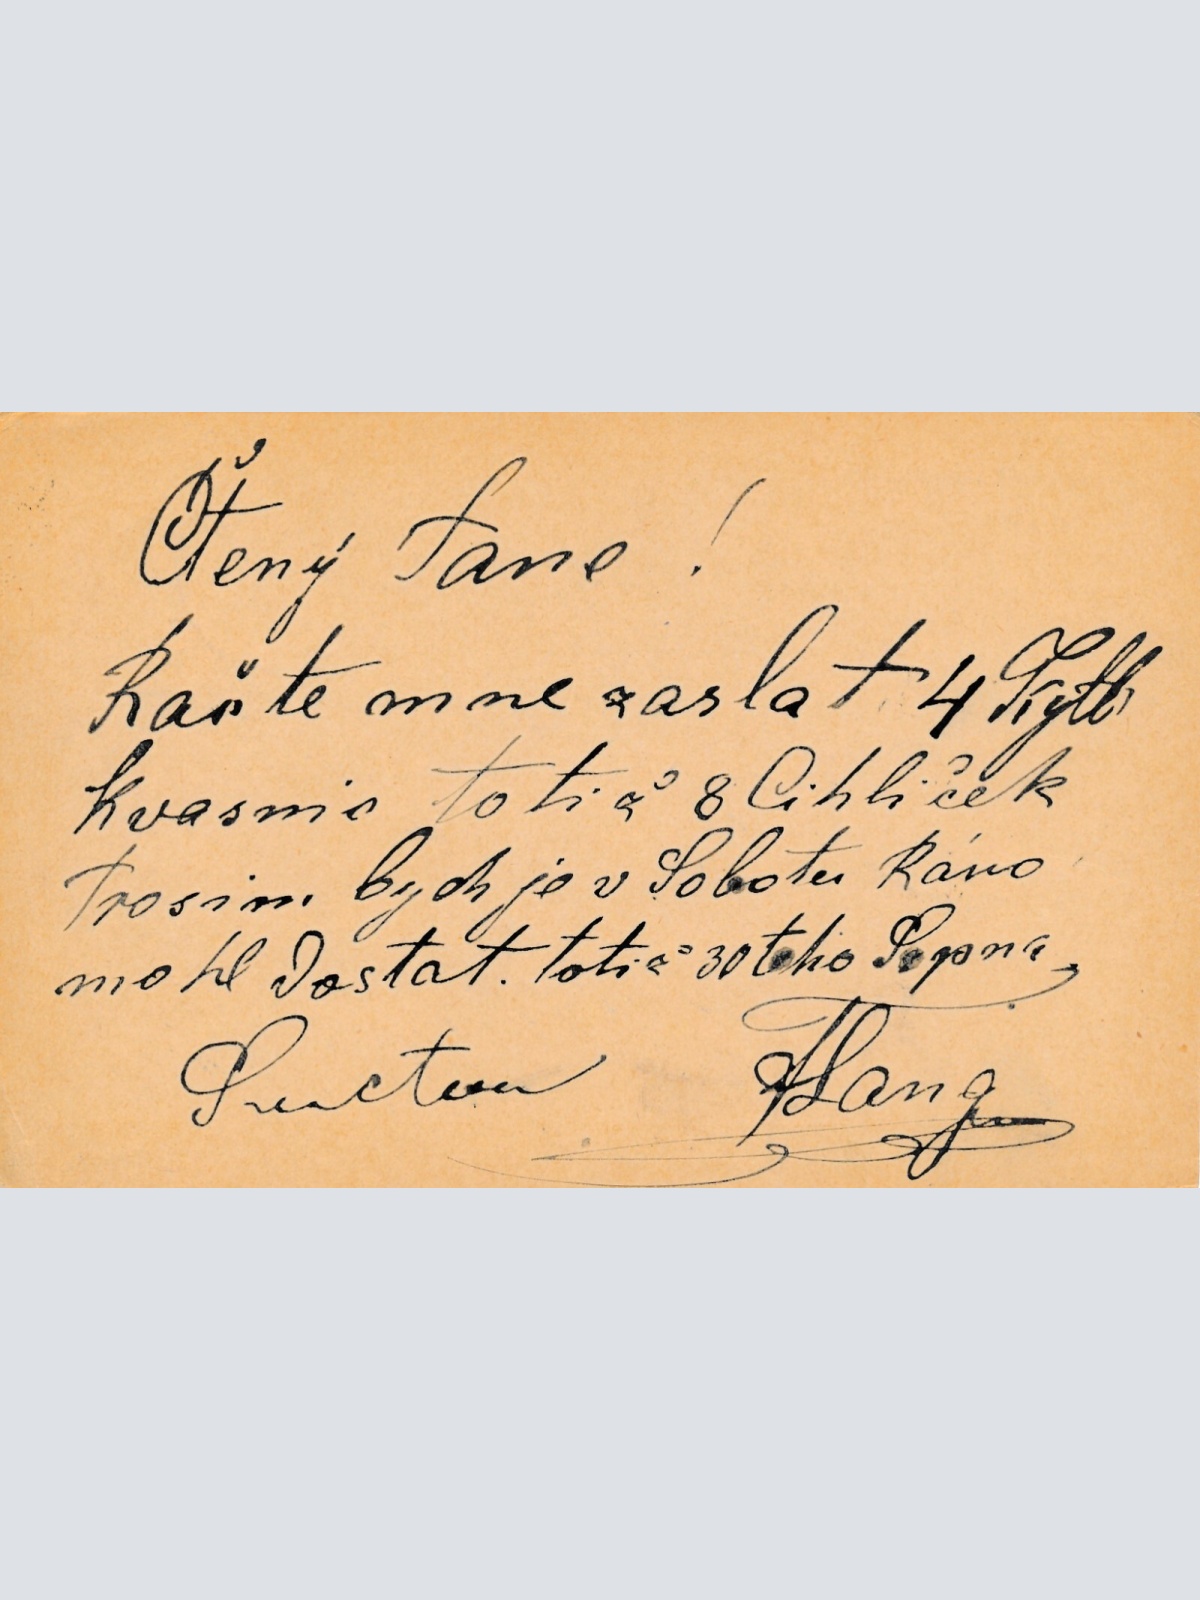 Čtený Pane !
Račte mne zaslat 4 
kvasnic totiž 8 Cihliček
Prosim bych je v Sobotu Ráno
mohl Dostat. totiž 30 teho Srpna
Lang